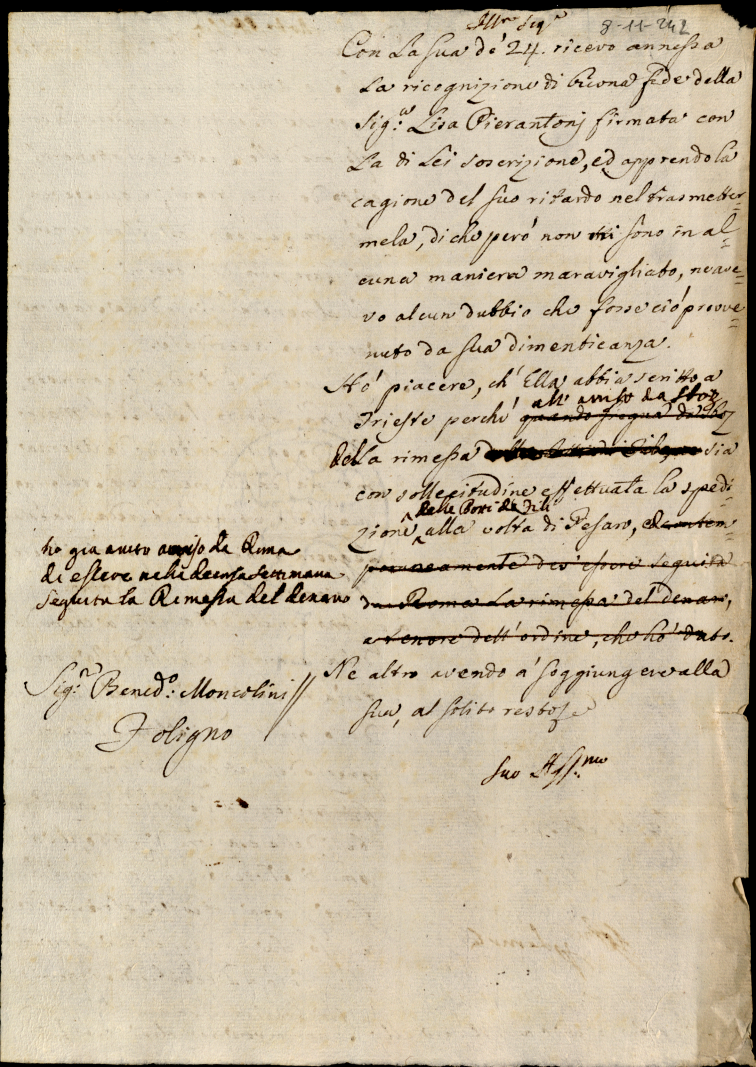 Ill.mo Sig.e
8-11-
Con La Sua de' 24. ricevo annessa
La ricognizione di buona fede della
Sig.ra Lisa Pierantonj firmata con
La di Lei soscrizione, ed apprendo la
cagione del suo ritardo nel trasmetter=
mela, di che peró non mi sono in al=
cuna maniera maravigliato, ne ave=
vo alcun dubbio che fosse ció prove=
nuto da sua dimenticanza.
Hó piacere, ch'Ella abbia scritto a
all' aviso da
Trieste perché quando segua
della rimessa sia
con sollecitudine effettuata la spedi=
delle Botti de
zione alla volta di Pesaro, e contem=
poraneamente dev'essere seguita
da Roma La rimessa del denaro,
a tenore dell'ordine, che hó dato.
ho gia avuto aviso da Roma
di essere nella decorsa settimana
seguita la Rimessa del denaro
Ne altro avendo a' soggiungere alla
sua, al solito resto
Suo Aff.mo
Sig.r Bened.o Moncolini //
Foligno